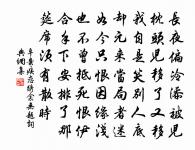 長夜偏冷添被兒
枕頭兒移了又移
我自是笑別人底
却元來當局者迷
如今只恨因緣淺
也不曾抵死恨伊
合手下安排了那
筵席須有散時
辛棄疾戀繡衾無題詞